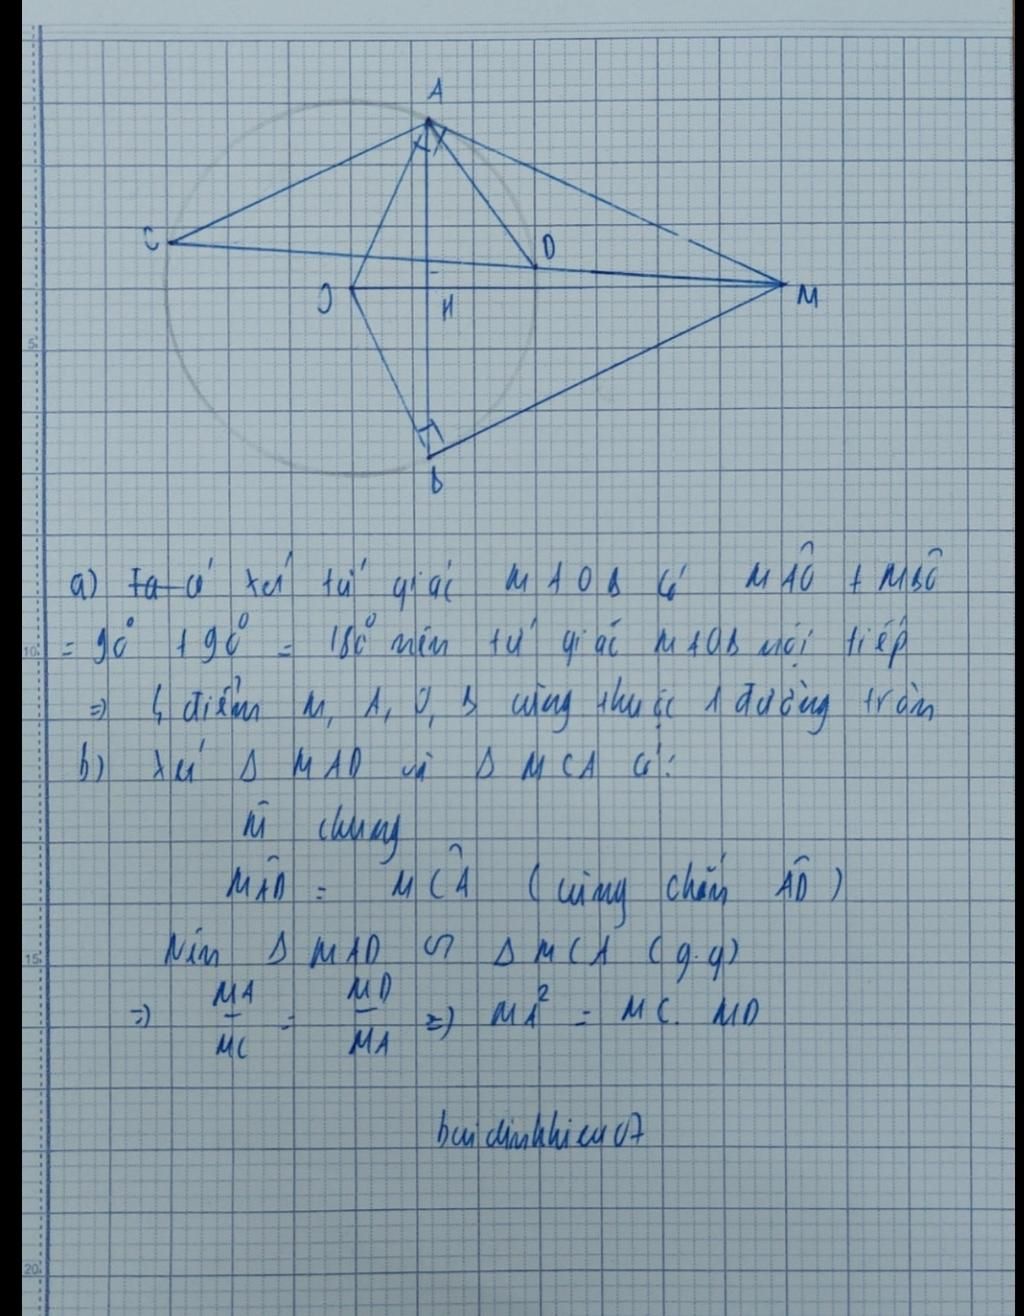 A
C
D
O
H
M
B
5
a) Ta có xét tứ giác MAOB có MAÔ + MBÔ
10
= 90° + 90° = 180° nên tứ giác MAOB nội tiếp
=> 4 điểm M, A, O, B cùng thuộc 1 đường tròn
b) Xét Δ MAD và Δ MCA có:
M̂ chung
MÂD = MĈA (cùng chắn AD̂)
15
Nên Δ MAD ∽ Δ MCA (g.g)
=> MA/MC = MD/MA => MA² = MC. MD
buidinhhieu07
20